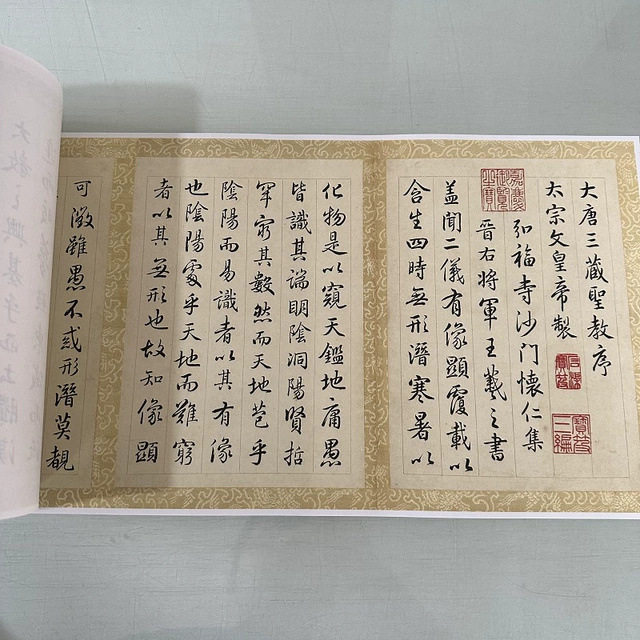 大唐三藏聖教序
太宗文皇帝製
石渠寶笈
寶笈三編
弘福寺沙門懷仁集
嘉慶御覽之寶
晉右將軍王羲之書
蓋聞二儀有像顯覆載以
含生四時無形潛寒暑以
化物是以窺天鑑地庸愚
皆識其端明陰洞陽賢哲
罕窮其數然而天地苞乎
陰陽而易識者以其有像
也陰陽處乎天地而難窮
者以其無形也故知像顯
可徵雖愚不惑形潛莫覩